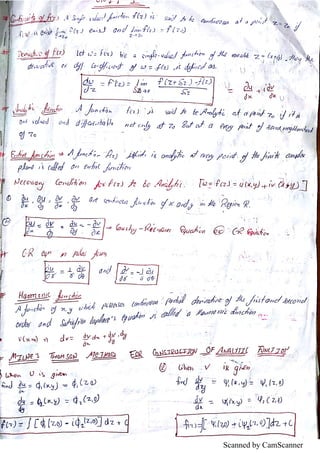 Continuity of f(z) :- A single valued function f(z) is said to be continuous at a point z = z₀ if
f(z₀) exist lim f(z) exist and lim f(z) = f(z₀)
z→z₀ z→z₀
Derivative of f(z) Let w = f(z) be a single-valued function of the variable z = (x+iy), then the
derivative or diff. coefficient of w = f(z) is defined as
dw/dz = f'(z) = lim f(z+δz) - f(z) / δz = ∂u/∂x + i∂v/∂x
δz→0
Analytic function A function f(z) is said to be Analytic at a point z₀ if it is
and differentiable not only at z₀ but at every point of some neighbourhood
of z₀
Entire function → A function f(z) which is analytic at every point of the finite complex
plane is called an entire function
Necessary Condition for f(z) to be Analytic. [w = f(z) = u(x,y) + iv(x,y)]
① ∂u/∂x, ∂u/∂y, ∂v/∂x, ∂v/∂y are continuous function of x and y in the Region R.
② ∂u/∂x = ∂v/∂y ∂u/∂y = -∂v/∂x → Cauchy-Riemann Equation OR CR Equation
CR eqn in polar form
∂u/∂r = 1/r ∂v/∂θ and ∂v/∂r = -1/r ∂u/∂θ
Harmonic function
A function of x, y which possesses continuous partial derivative of the first and second
order and satisfies Laplace's equation is called a Harmonic function
dv = ∂v/∂x dx + ∂v/∂y dy
MILNE'S THOMSON METHOD FOR CONSTRUCTION OF ANALYTIC FUNCTION
① When U is given
find ∂u/∂x = ϕ₁(x,y) = ϕ₁(z,0)
∂u/∂y = ϕ₂(x,y) = ϕ₂(z,0)
f(z) = ∫[ϕ₁(z,0) - iϕ₂(z,0)]dz + C
② When V is given
find ∂v/∂y = ψ₁(x,y) = ψ₁(z,0)
∂v/∂x = ψ₂(x,y) = ψ₂(z,0)
f(z) = ∫[ψ₁(z,0) + iψ₂(z,0)]dz + C
Scanned by CamScanner